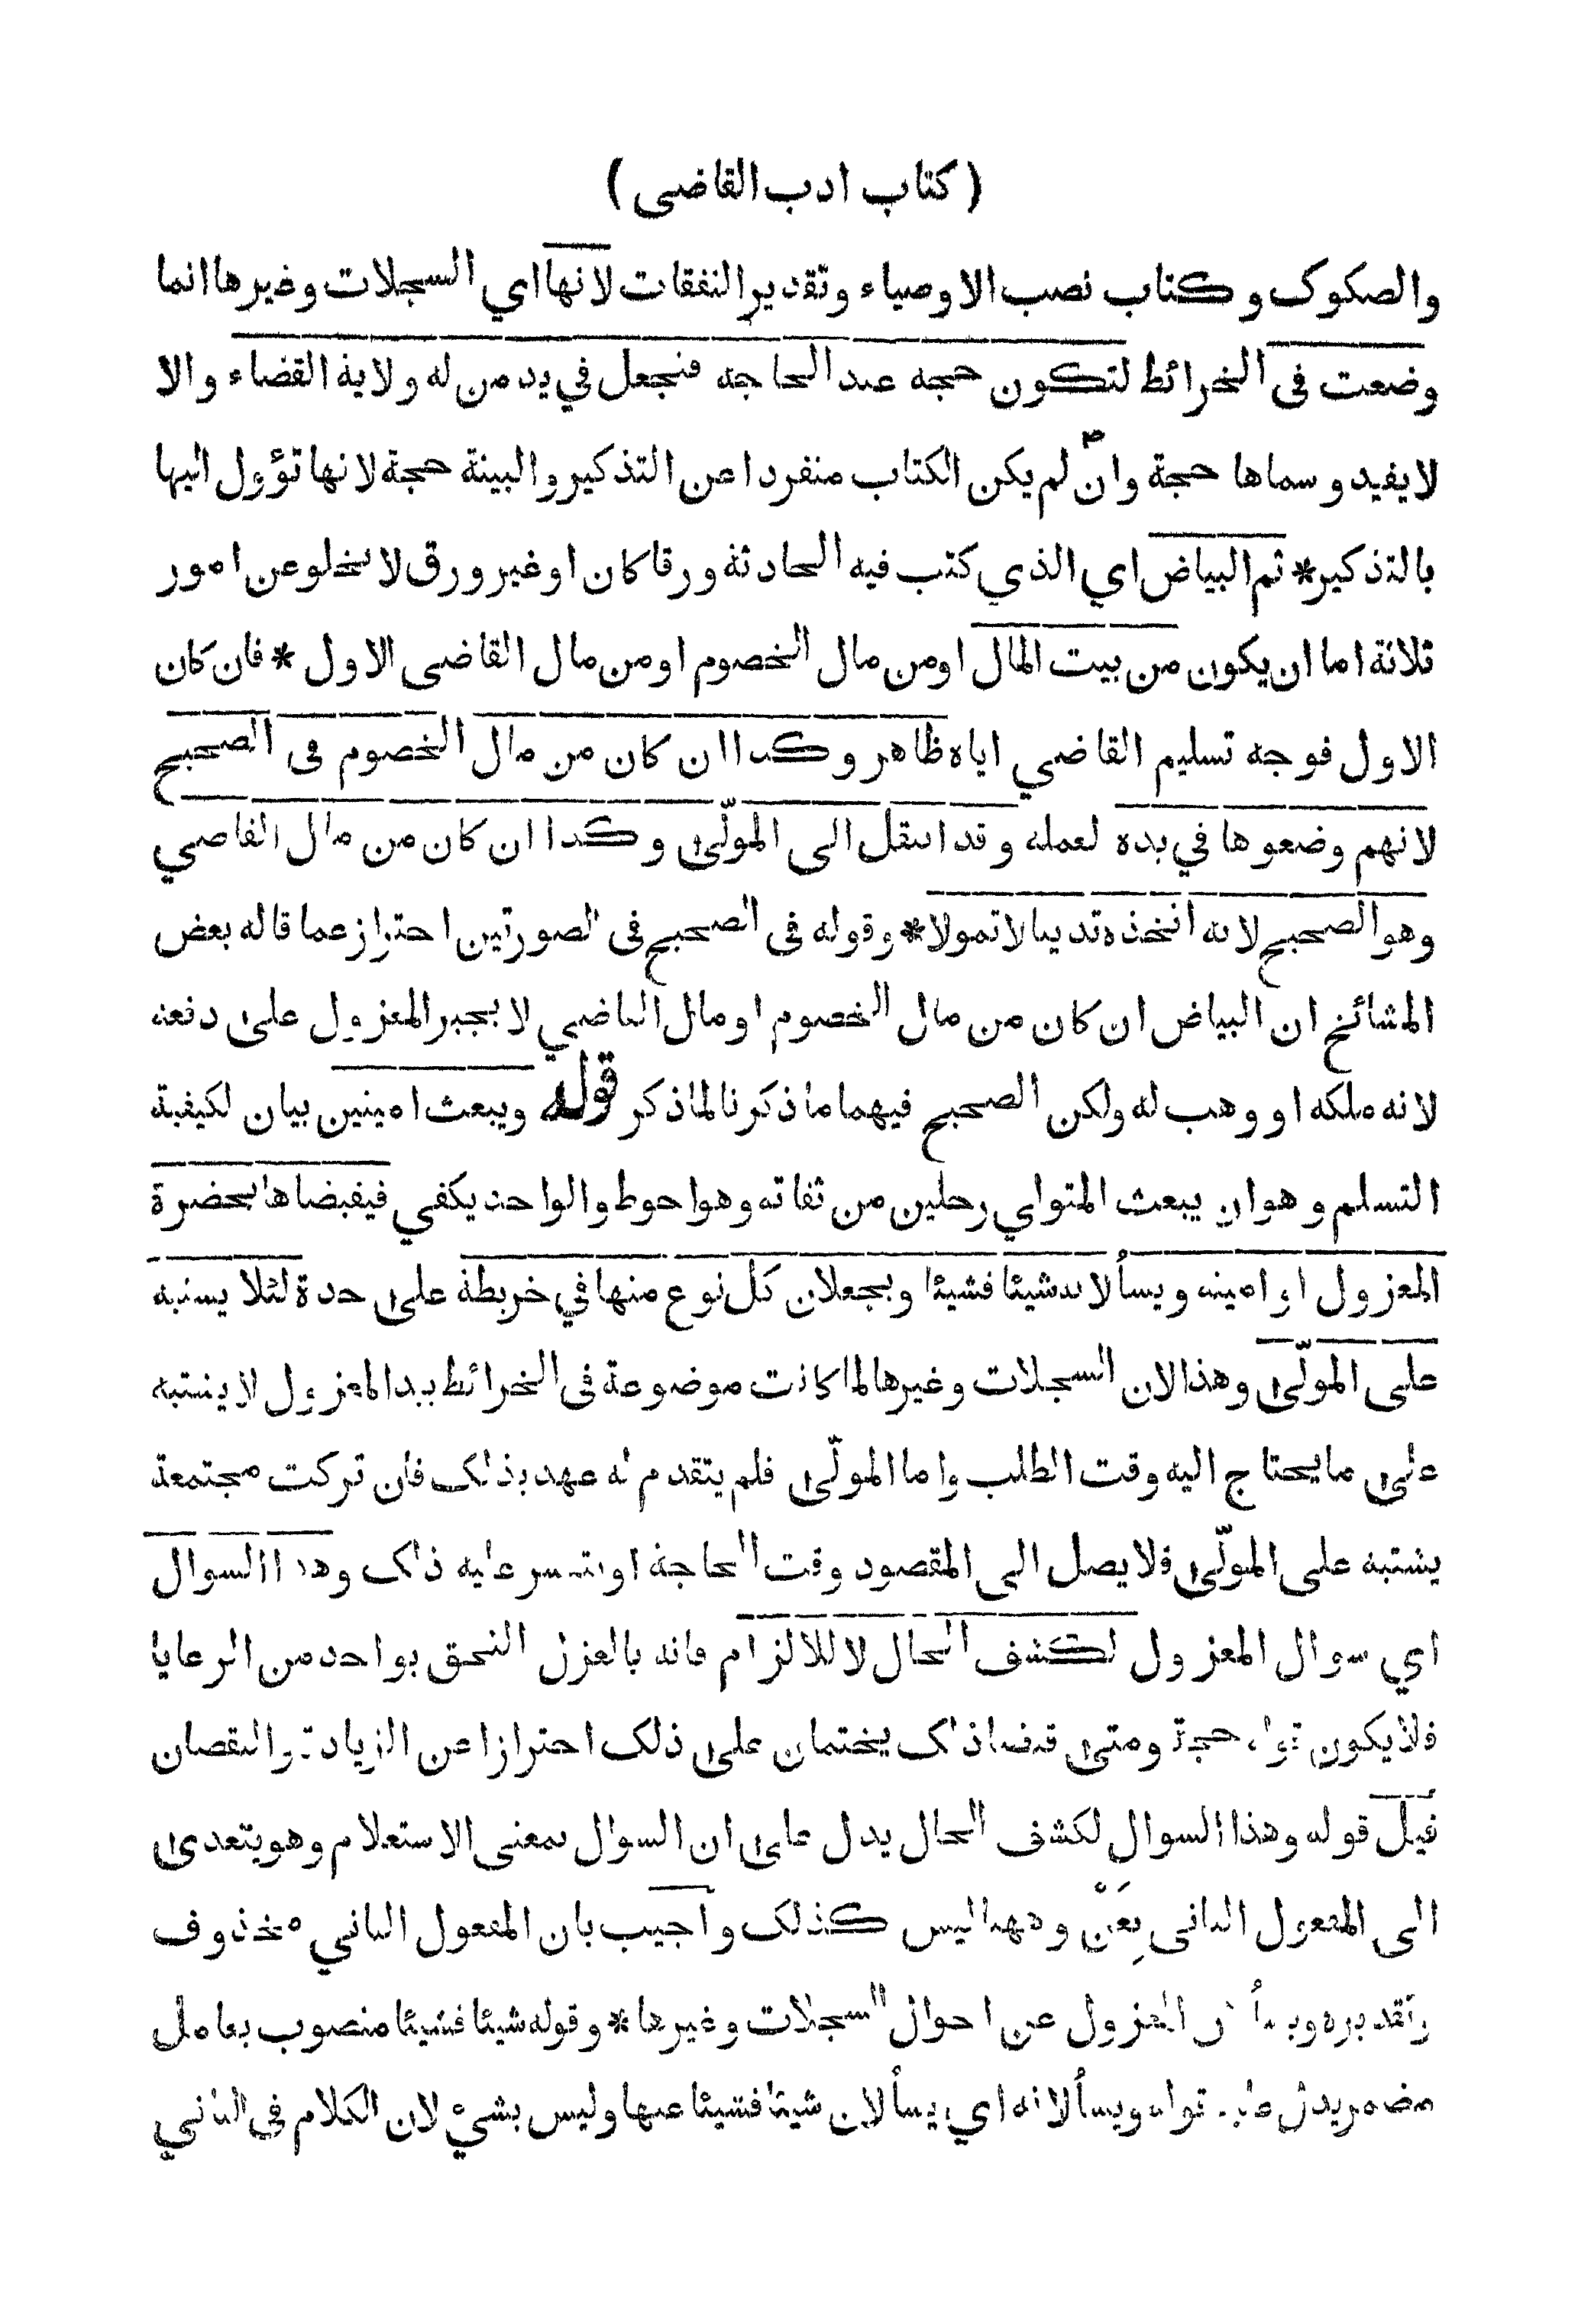 ( كتاب ادب القاضى )
والصكوك وكتاب نصب الاوصياء وتقدير النفقات لانها اي السجلات وغيرها انما
وضعت فى الخرائط لتكون حجة عند الحاجة فتجعل في يد من له ولاية القضاء والا
لايفيد وسماها حجة وان لم يكن الكتاب منفردا عن التذكير والبينة حجة لانها تؤول اليها
بالتذكير * ثم البياض اي الذي كتب فيه الحادثة ورقا كان او غير ورق لا يخلو عن امور
ثلاثة اما ان يكون من بيت المال او من مال الخصوم او من مال القاضى الاول * فان كان
الاول فوجه تسليم القاضي اياه ظاهر وكذا ان كان من مال الخصوم فى الصحيح
لانهم وضعوها في يده لعمله وقد انتقل الى المولّى وكذا ان كان من مال القاضي
وهو الصحيح لانه اتخذه تدينا لا تمولا * وقوله فى الصحيح فى الصورتين احتراز عما قاله بعض
المشائخ ان البياض ان كان من مال الخصوم او مال القاضي لا يجبر المعزول على دفعه
لانه ملكه او وهب له ولكن الصحيح فيهما ما ذكرنا لما ذكر قوله ويبعث امينين بيان لكيفية
التسلم وهو ان يبعث المتولي رجلين من ثقاته وهو احوط والواحد يكفي فيقبضاها بحضرة
المعزول او امينه ويسألانه شيئا فشيئا ويجعلان كل نوع منها في خريطة على حدة لئلا يشتبه
على المولّى وهذا لان السجلات وغيرها لما كانت موضوعة فى الخرائط بيد المعزول لا يشتبه
على ما يحتاج اليه وقت الطلب واما المولّى فلم يتقدم له عهد بذلك فان تركت مجتمعة
يشتبه على المولّى فلا يصل الى المقصود وقت الحاجة او يتعسر عليه ذلك وهذا السوال
اي سوال المعزول لكشف الحال لا للالزام فانه بالعزل التحق بواحد من الرعايا
فلا يكون قوله حجة ومتى قبضا ذلك يختمان على ذلك احترازا عن الزيادة والنقصان
قيل قوله وهذا السوال لكشف الحال يدل على ان السوال بمعنى الاستعلام وهو يتعدى
الى المفعول الثانى بِعَنْ وههنا ليس كذلك وأجيب بان المفعول الثاني محذوف
وتقديره المعزول عن احوال السجلات وغيرها * وقوله شيئا فشيئا منصوب بعامل
مضمر يدل عليه قوله ويسألانه اي يسألان شيئا فشيئا عنها وليس بشيء لان الكلام فى الثاني